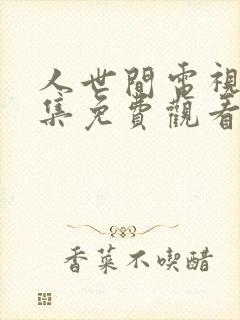 人世間電視
集免費觀看
香菜不喫醋